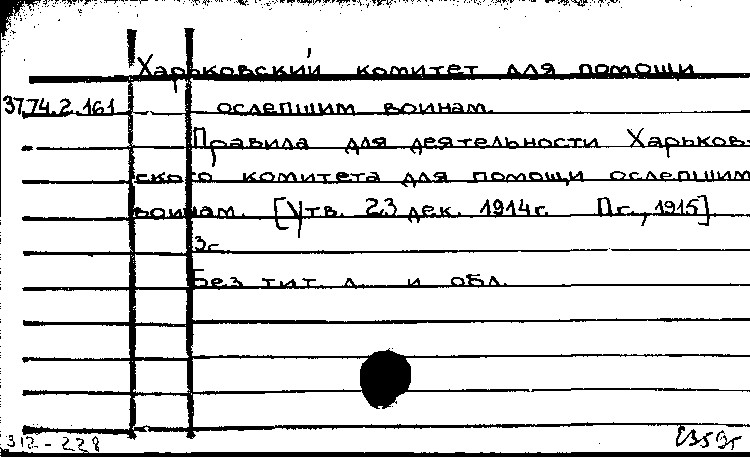 Харьковский комитет для помощи
37.74.2.161 ослепшим воинам.
Правила для деятельности Харьков-
ского комитета для помощи ослепшим
воинам. [Утв. 23 дек. 1914г. Пг., 1915]
3с.
Без тит. л. и обл.
312-228